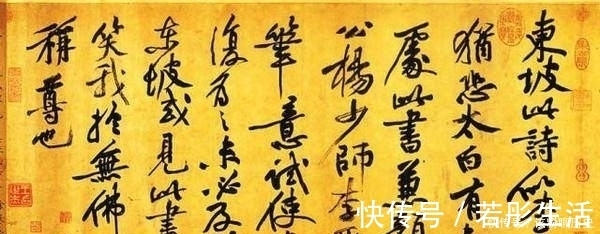 東坡此詩似
猶恐太白有
處此書兼顏
公楊少師李
筆意試使
復為之未必及
東坡或見此書
笑我於無佛
稱尊也
快传号 / 若彤生活